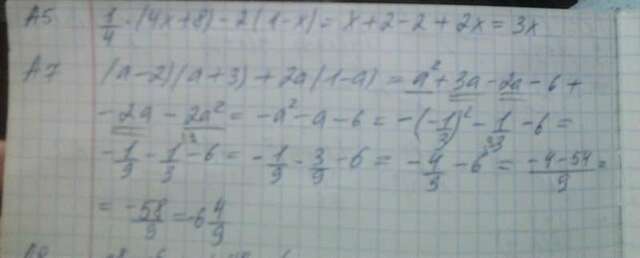 А5 1/4 · (4x+8) - 2(1-x) = x+2-2+2x = 3x
А7 (a-2)(a+3) + 2a(1-a) = a² + 3a - 2a - 6 +
- 2a - 2a² = -a² - a - 6 = -(-1/3)² - 1/3 - 6 =
- 1/9 - 1/3 - 6 = - 1/9 - 3/9 - 6 = - 4/9 - 6 = (-4-54)/9 =
= -58/9 = -6 4/9